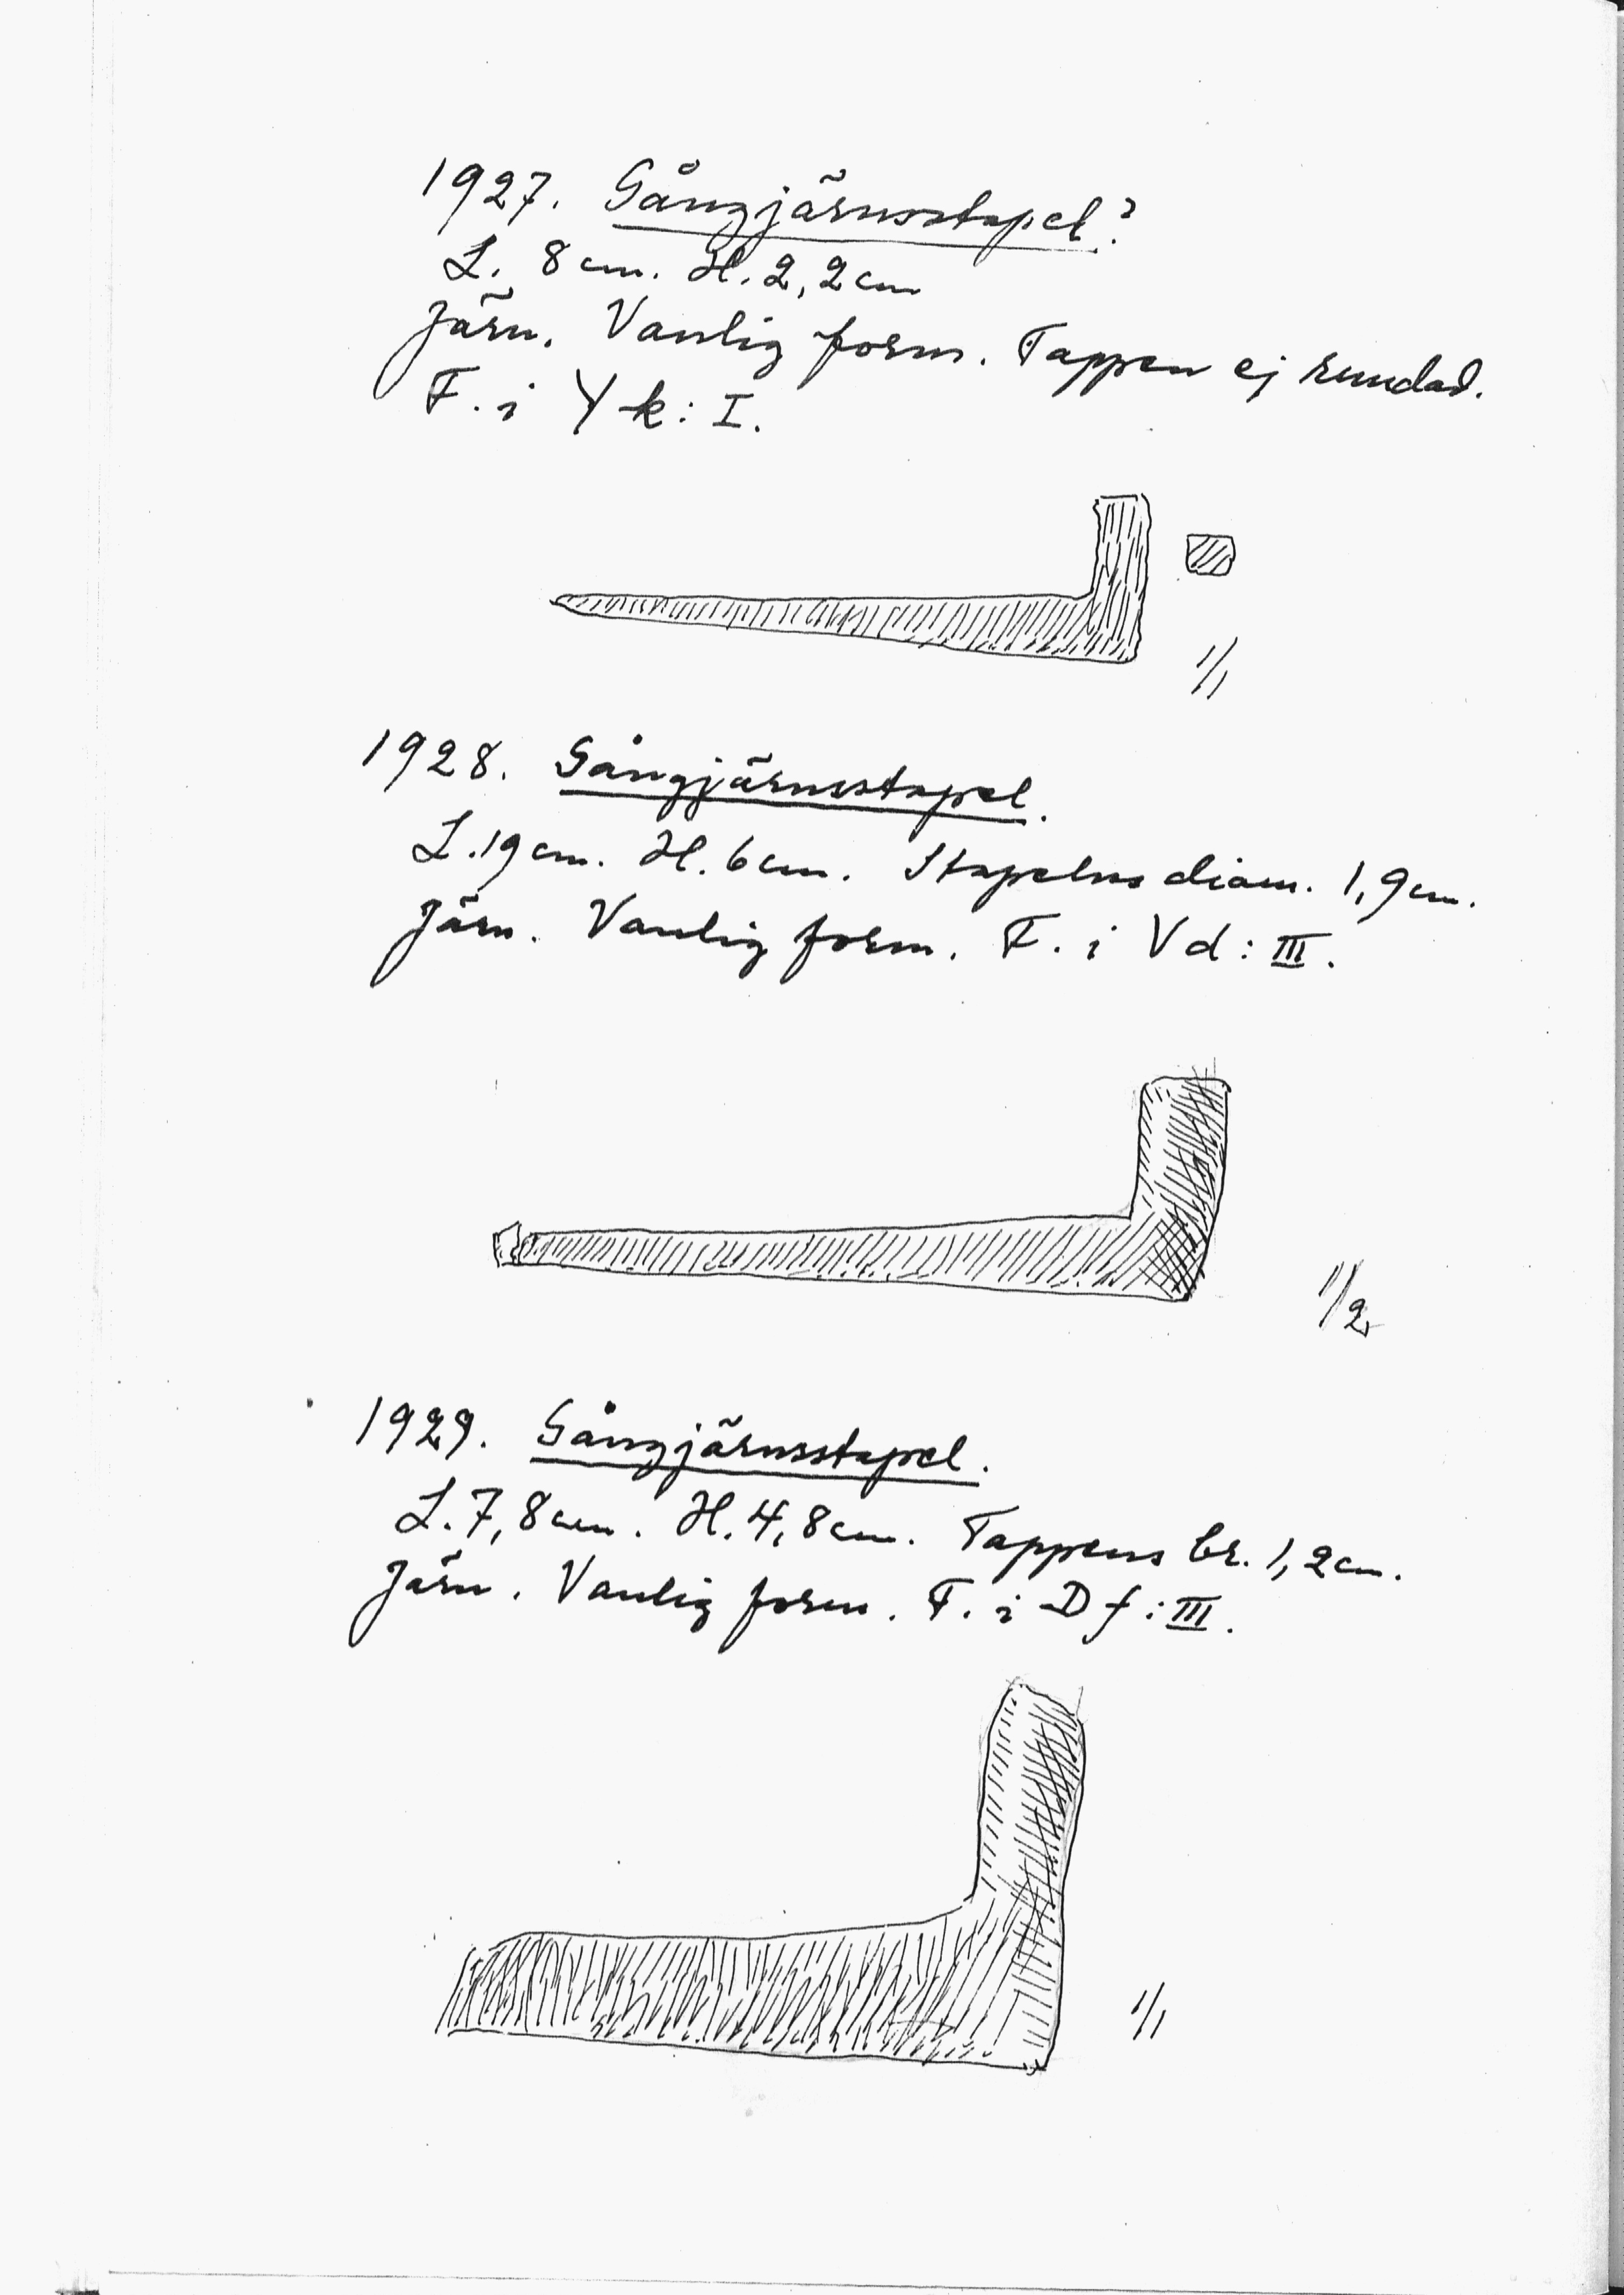 1927. Gångjärnsstapel?
L. 8 cm. H. 2,2 cm
Järn. Vanlig form. Tappen ej rundad.
F. i Yk: I.
1/1
1928. Gångjärnsstapel.
L. 19 cm. H. 6 cm. Stapelns diam. 1,9 cm.
Järn. Vanlig form. F. i Vd: III.
1/2
1929. Gångjärnsstapel.
L. 7,8 cm. H. 4,8 cm. Tappens br. 1,2 cm.
Järn. Vanlig form. F. i Df: III.
1/1